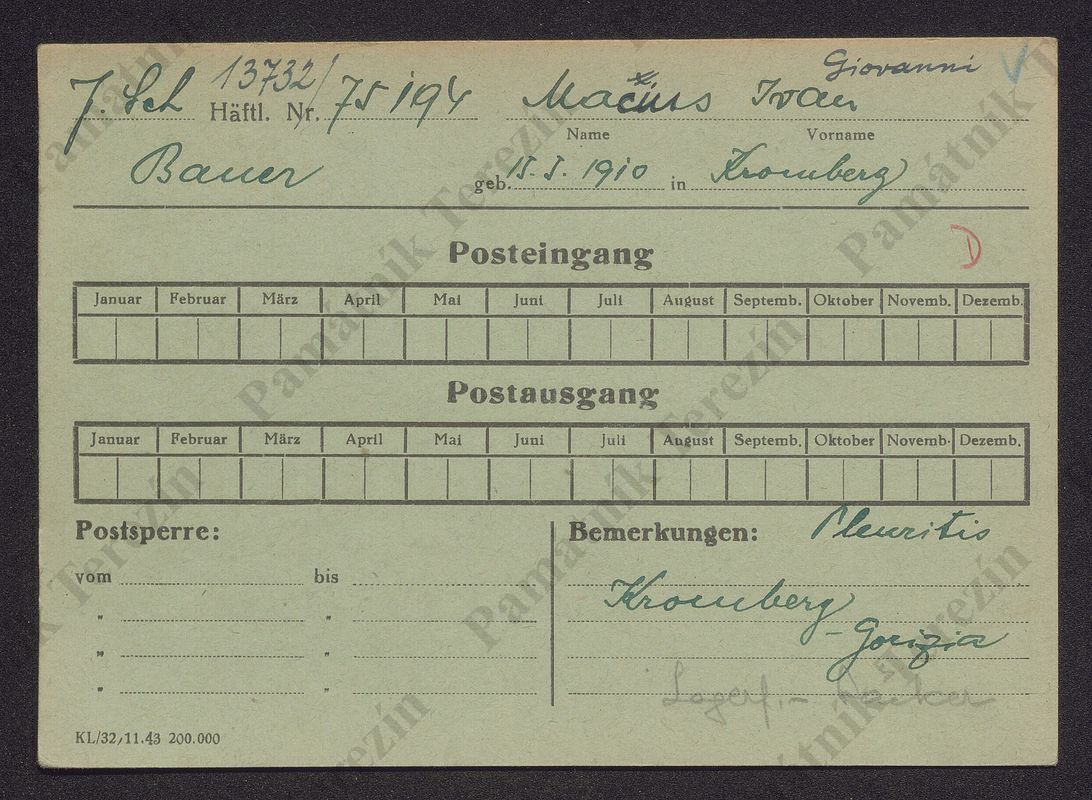 Giovanni
J. Sch 13732/ 75194 Ivan
Häftl. Nr.
Name Vorname
Bauer geb. 15. I. 1910 in Kromberg
Posteingang
D
Januar Februar März April Mai Juni Juli August Septemb. Oktober Novemb. Dezemb.
Postausgang
Januar Februar März April Mai Juni Juli August Septemb. Oktober Novemb. Dezemb.
Postsperre: Bemerkungen: Pleuritis
vom bis
Kromberg
" "
- Gorizia
" "
" " Lagerf. -
KL/32/11.43 200.000
Památník Terezín